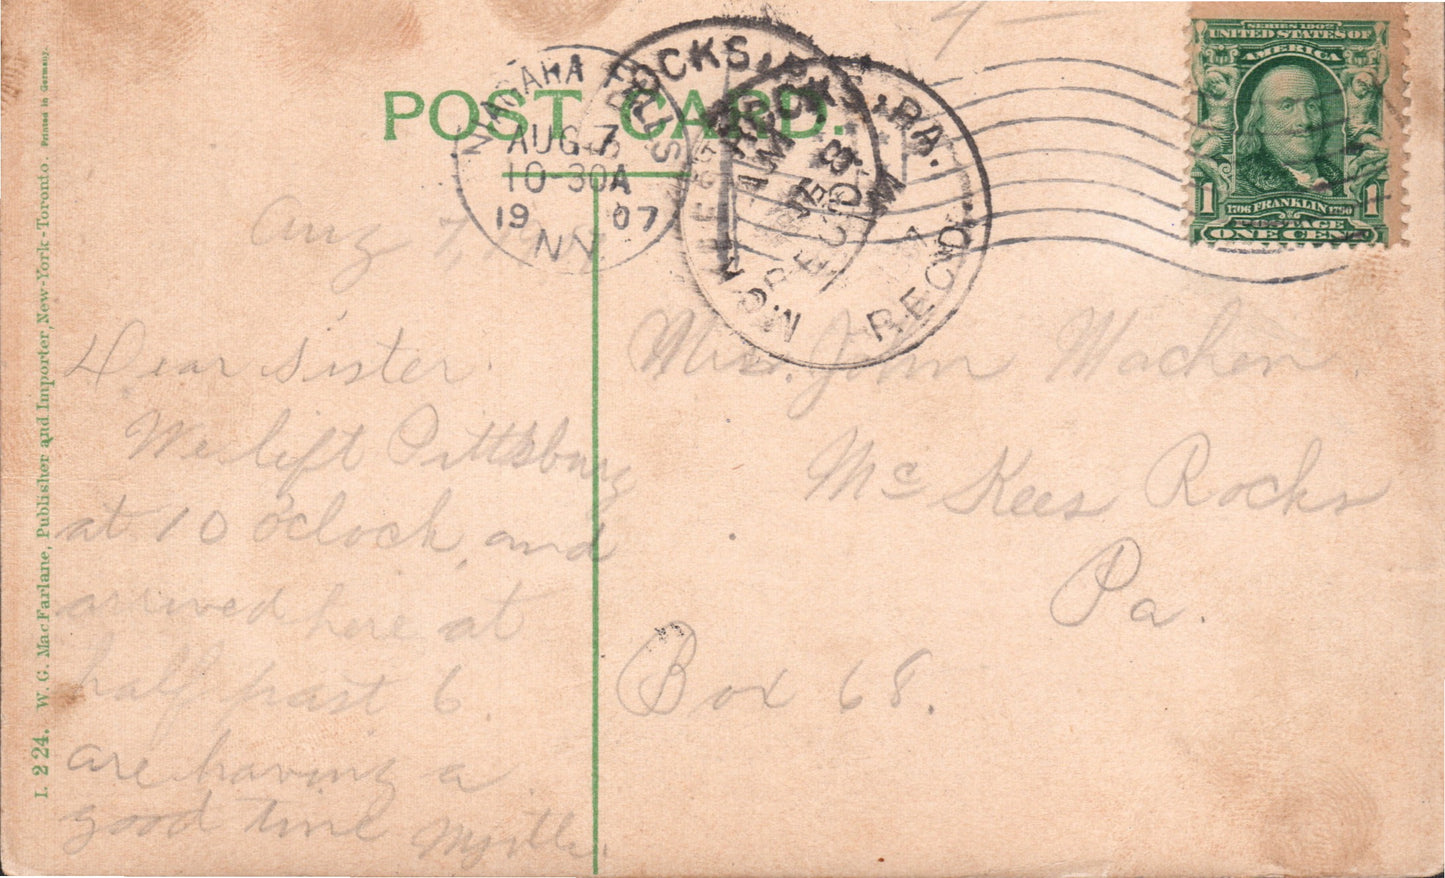 POST CARD.
NIAGARA FALLS
AUG 7
10-30A
19 07
N.Y.
ROCKS, PA.
REC'D
SERIES 1902
UNITED STATES OF
AMERICA
1 1706 FRANKLIN 1790 1
POSTAGE
ONE CENT
Aug 7,
Dear Sister.
We left Pittsburg
at 10 o'clock, and
arrived here at
half past 6.
are having a
good time Myrtle.
Mrs. John Machen.
Mc Kees Rocks
Pa.
Box 68.
I. 224. W. G. MacFarlane, Publisher and Importer, New-York-Toronto. Printed in Germany.